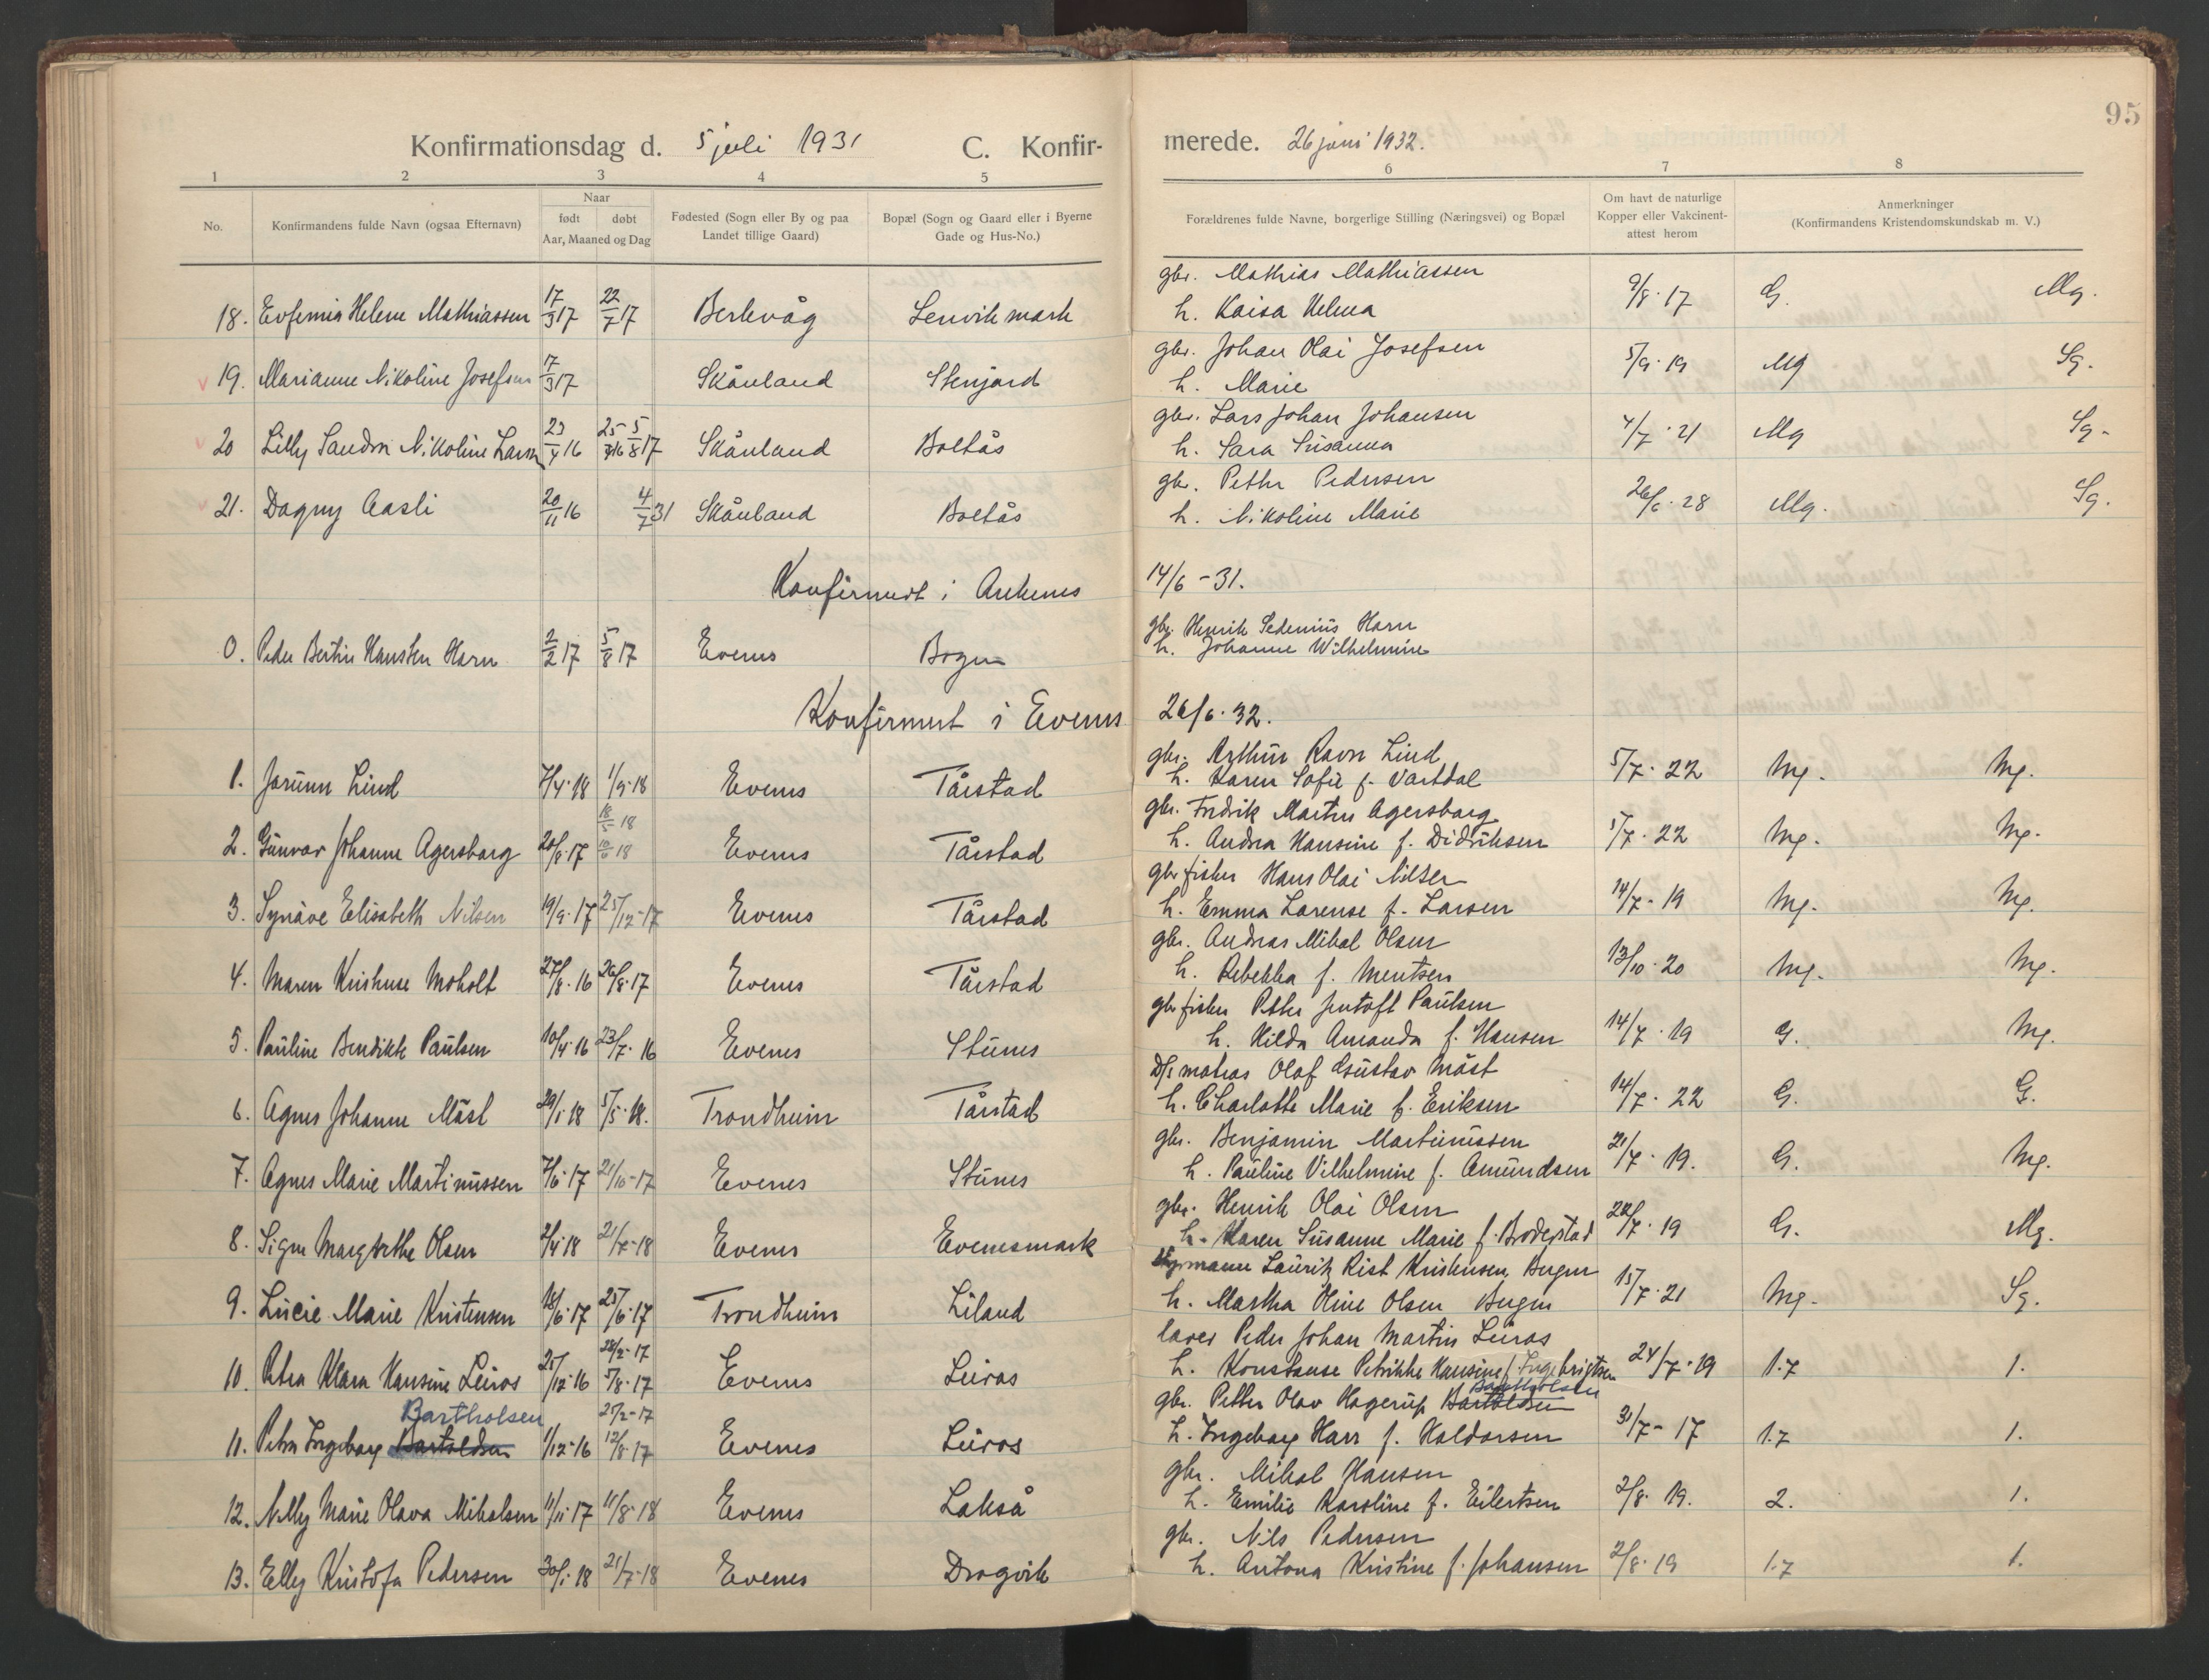 95
Konfirmationsdag d. 5 juli 1931 C. Konfir-merede. 26 juni 1932.
1 2 3 4 5 6 7 8
No. Konfirmandens fulde Navn (ogsaa Efternavn) Naar født døbt Aar, Maaned og Dag Fødested (Sogn eller By og paa Landet tillige Gaard) Bopæl (Sogn og Gaard eller i Byerne Gade og Hus-No.) Forældrenes fulde Navne, borgerlige Stilling (Næringsvei) og Bopæl Om havt de naturlige Kopper eller Vakcinent-attest herom Anmerkninger (Konfirmandens Kristendomskundskab m. V.)
gbr. Mathias Mathiassen
18. Eufemia Helene Mathiassen 17/3 17 22/7 17 Berlevåg Lenvikmark h. Kaisa Helena 9/8·17 G. Mg.
gbr. Johan Olai Josefsen
19. Marianne Nikoline Josefsen 17/3 17 Skånland Stenjord h. Marie 5/9·19 Mg Sg.
gbr. Lars Johan Johansen
20 Lilly Sandra Nikoline Larsen 23/4 16 5/8 17 Skånland Boltås h. Sara Susanna 4/7·21 Mg Sg.
gbr. Petter Pedersen
21. Dagny Aasli 20/11 16 4/7 31 Skånland Boltås h. Nikoline Marie 26/6·28 Mg. Sg.
Konfirmert i Ankenes 14/6-31.
gbr. Henrik Sedenius Harr
0. Peder Bertin Hansten Harr 2/2 17 5/8 17 Evenes Bogen h. Johanne Wilhelmine
Konfirmert i Evenes 26/6·32.
gbr. Arthur Ravn Lind
1. Jorunn Lind 7/4·18 1/9·18 Evenes Tårstad h. Karen Sofie f. Vartdal 5/7·22 Mg. Mg.
18/5 18 gbr. Fredrik Martin Agersborg
2. Gunvor Johanne Agersborg 28/8·17 10/6 18 Evenes Tårstad h. Andrea Hansine f. Didriksen 5/7·22 Mg. Mg.
gbr fisker Hans Olai Nilsen
3. Synøve Elisabeth Nilsen 19/9·17 25/12-17 Evenes Tårstad h. Emma Larense f. Larsen 14/7-19 Mg. Mg.
gbr. Andreas Mikal Olsen
4. Maren Kristense Moholt 27/8·16 26/8·17 Evenes Tårstad h. Rebekka f. Mentsen 13/10·20 Mg. Mg.
gbr fisker Petter Jentoft Paulsen
5. Pauline Bendikte Paulsen 10/4·16 23/7·16 Evenes Stunes h. Hilda Amanda f. Hansen 14/7·19 G. Mg.
D/s matros Olaf Gustav Måst
6. Agnes Johanne Måst 29/1 18 5/5·18. Trondheim Tårstad h. Charlotte Marie f. Eriksen 14/7·22 G. G.
gbr. Benjamin Martinussen
7. Agnes Marie Martinussen 7/6·17 21/10-17 Evenes Stunes h. Pauline Vilhelmine f. Amundsen 21/7·19. G. Mg.
gbr. Henrik Olai Olsen
8. Signe Margrethe Olsen 2/4·18 21/7-18 Evenes Evenesmark h. Karen Susanne Marie f. Broderstad 22/7·19 G. Mg.
Styrmann Lauritz Rist Kristensen, Bergen
9. Lucie Marie Kristensen 18/6·17 25/6·17 Trondheim Liland h. Martha Oline Olsen Bergen 15/7·21 Mg. Sg.
28/2-17 lærer Peder Johan Martin Leiros
10. Petra Klara Hansine Leiros 25/12·16 5/8·17 Evenes Leiros h. Konstanse Petrikke Hansine f. Ingebrigtsen 24/7-19 1.7 1.
Bartholsen 25/2-17 gbr. Petter Olav Hagerup Bartoldsen Bartholsen
11. Petra Ingeborg Bartoldsen 1/12-16 12/8·17 Evenes Leiros h. Ingeborg Harr f. Haldorsen 31/7-17 1.7 1.
gbr. Mikal Hansen
12. Nelly Marie Olava Mikalsen 11/11·17 11/8·18 Evenes Lakså h. Emilie Karoline f. Eilertsen 2/8·19. 2. 1.
gbr. Nils Pedersen
13. Elly Kristofa Pedersen 30/1·18 21/7-18 Evenes Dragvik h. Antona Kristine f. Johansen 2/8·19 1.7 1.